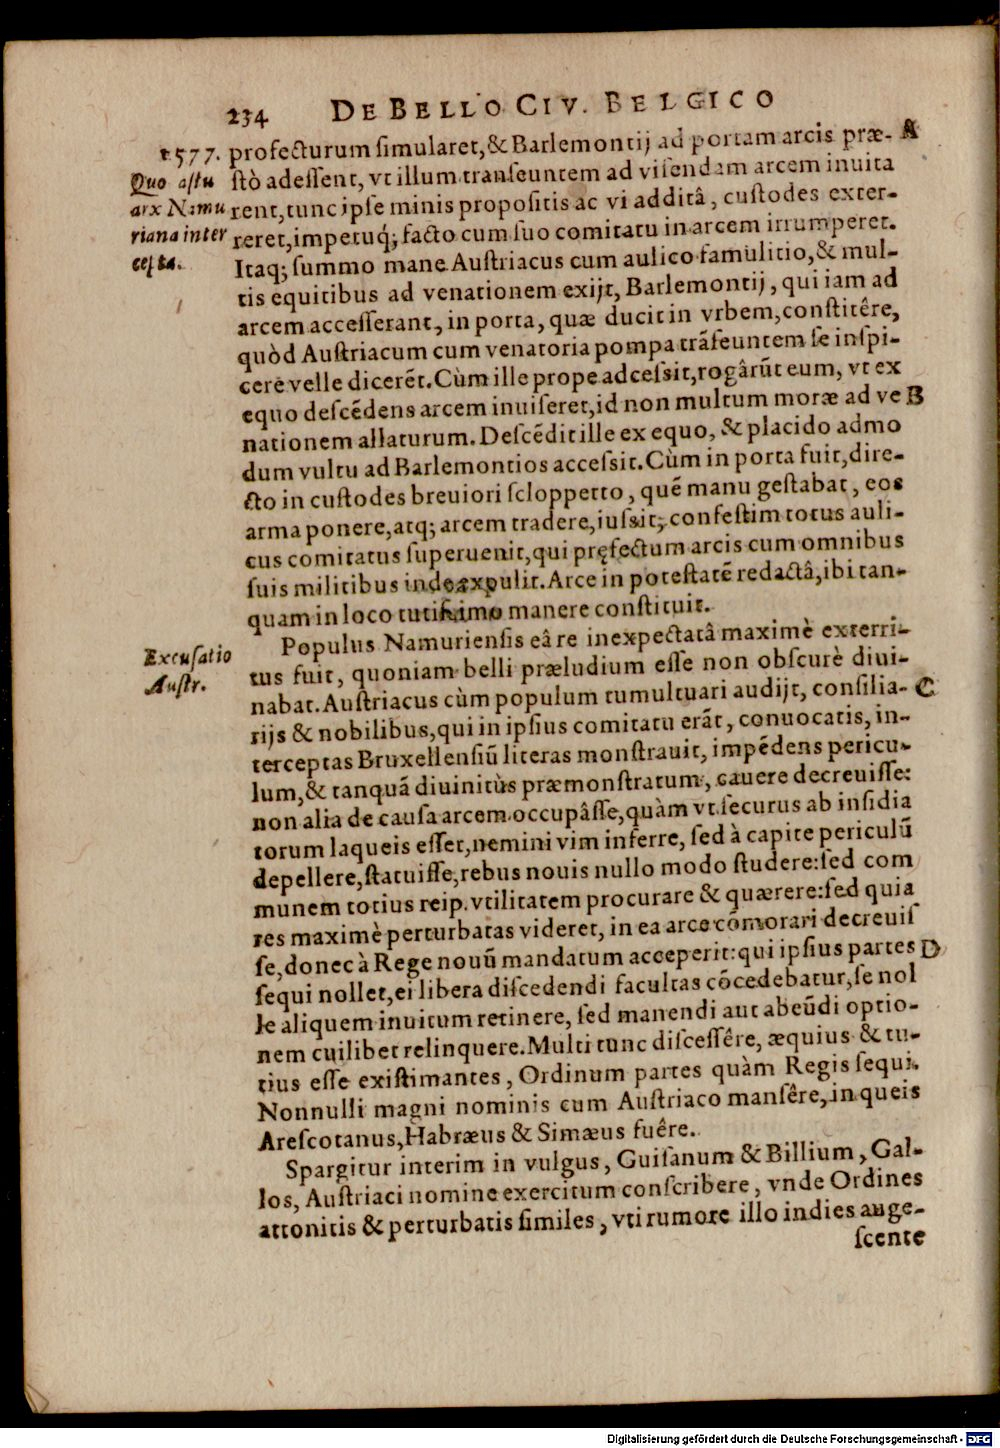 234 DE BELLO CIV. BELGICO
1577. profecturum ſimularet, & Barlemontij ad portam arcis præ- A
Quo aſtu ſtò adeſſent, vt illum tranſeuntem ad viſendam arcem inuita
arx Namu rent, tunc ipſe minis propoſitis ac vi additâ, cuſtodes exter-
riana inter reret, impetuq́; facto cum ſuo comitatu in arcem irrumperet.
cepta. Itaq; ſummo mane Auſtriacus cum aulico famulitio, & mul-
tis equitibus ad venationem exijt, Barlemontij, qui iam ad
arcem acceſſerant, in porta, quæ ducit in vrbem, conſtitêre,
quòd Auſtriacum cum venatoria pompa trãſeuntem ſe inſpi-
cere velle dicerẽt. Cùm ille prope adceſsit, rogârũt eum, vt ex
equo deſcẽdens arcem inuiſeret, id non multum moræ ad ve B
nationem allaturum. Deſcẽdit ille ex equo, & placido admo
dum vultu ad Barlemontios acceſsit. Cùm in porta fuit, dire-
cto in cuſtodes breuiori ſcloppetto, quẽ manu geſtabat, eos
arma ponere, atq; arcem tradere, iuſsit; confeſtim totus auli-
cus comitatus ſuperuenit, qui pręfectum arcis cum omnibus
ſuis militibus inde expulit. Arce in poteſtatẽ redactâ, ibi tan-
quam in loco tutiſsimo manere conſtituit.
Populus Namurienſis eâ re inexpectatâ maximè exterri-
Excuſatio tus fuit, quoniam belli præludium eſſe non obſcurè diui-
Auſtr. nabat. Auſtriacus cùm populum tumultuari audijt, conſilia- C
rijs & nobilibus, qui in ipſius comitatu erãt, conuocatis, in-
terceptas Bruxellenſiũ literas monſtrauit, impẽdens pericu-
lum, & tanquã diuinitùs præmonſtratum, cauere decreuiſſe:
non alia de cauſa arcem occupâſſe, quàm vt ſecurus ab inſidia
torum laqueis eſſet, nemini vim inferre, ſed à capite periculũ
depellere, ſtatuiſſe, rebus nouis nullo modo ſtudere: ſed com
munem totius reip. vtilitatem procurare & quærere: ſed quia
res maximè perturbatas videret, in ea arce cõmorari decreuiſ
ſe, donec à Rege nouũ mandatum acceperit: qui ipſius partes D
ſequi nollet, ei libera diſcedendi facultas cõcedebatur, ſe nol
le aliquem inuitum retinere, ſed manendi aut abeũdi optio-
nem cuilibet relinquere. Multi tunc diſceſſêre, æquius & tu-
tius eſſe exiſtimantes, Ordinum partes quàm Regis ſequi.
Nonnulli magni nominis cum Auſtriaco manſêre, in queis
Areſcotanus, Habræus & Simæus fuêre.
Spargitur interim in vulgus, Guiſanum & Billium, Gal-
los, Auſtriaci nomine exercitum conſcribere, vnde Ordines
attonitis & perturbatis ſimiles, vti rumore illo indies auge-
ſcente
Digitalisierung gefördert durch die Deutsche Forschungsgemeinschaft - DFG